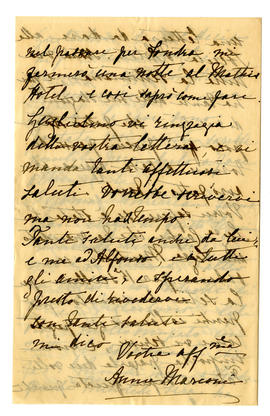 nel passare per Londra mi
fermerò una notte al Mathis
Hotel e così saprò come fare.
Guglielmo vi ringrazia
della vostra lettera e vi
manda tanti affettuosi
saluti vorrebbe scrivervi
ma non ha tempo
Tanti saluti anche da Luigi
e me ad Alfonso e a tutti
gli amici, e sperando
presto di rivedervi
con tanti saluti
mi dico Vostra affma
Annie Marconi